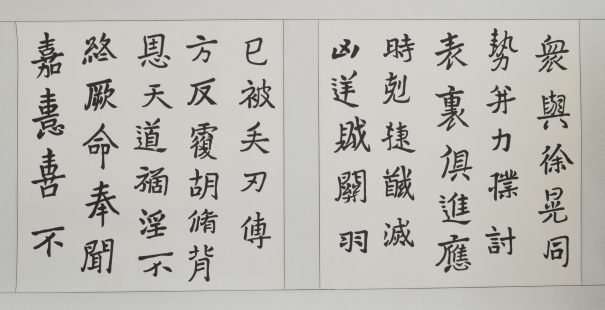 衆與徐晃同
勢并力撲討
表裏俱進應
時剋捷馘滅
凶逆賊關羽
已被矢刃傅
方反覆胡脩背
恩天道禍淫不
終厥命奉聞
嘉憙喜不